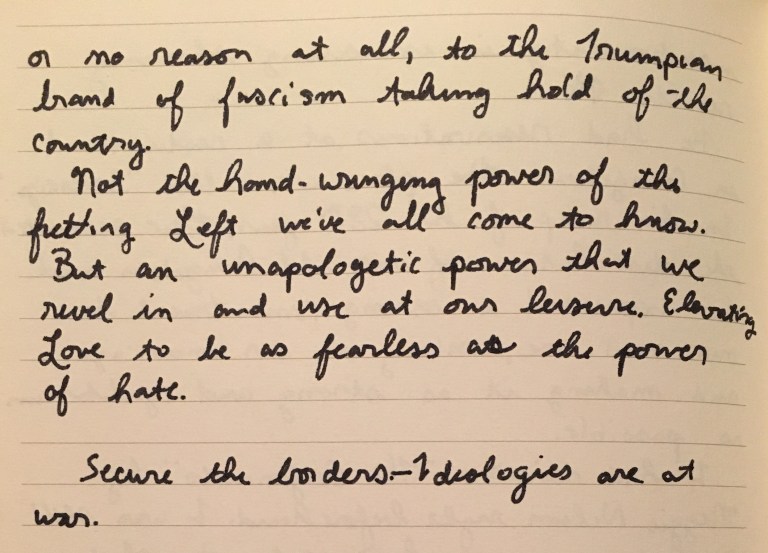 or no reason at all, to the Trumpian
brand of fascism taking hold of the
country.
Not the hand-wringing power of the
fretting Left we've all come to know.
But an unapologetic power that we
revel in and use at our leisure. Elevating
Love to be as fearless as the power
of hate.
Secure the borders.-Ideologies are at
war.